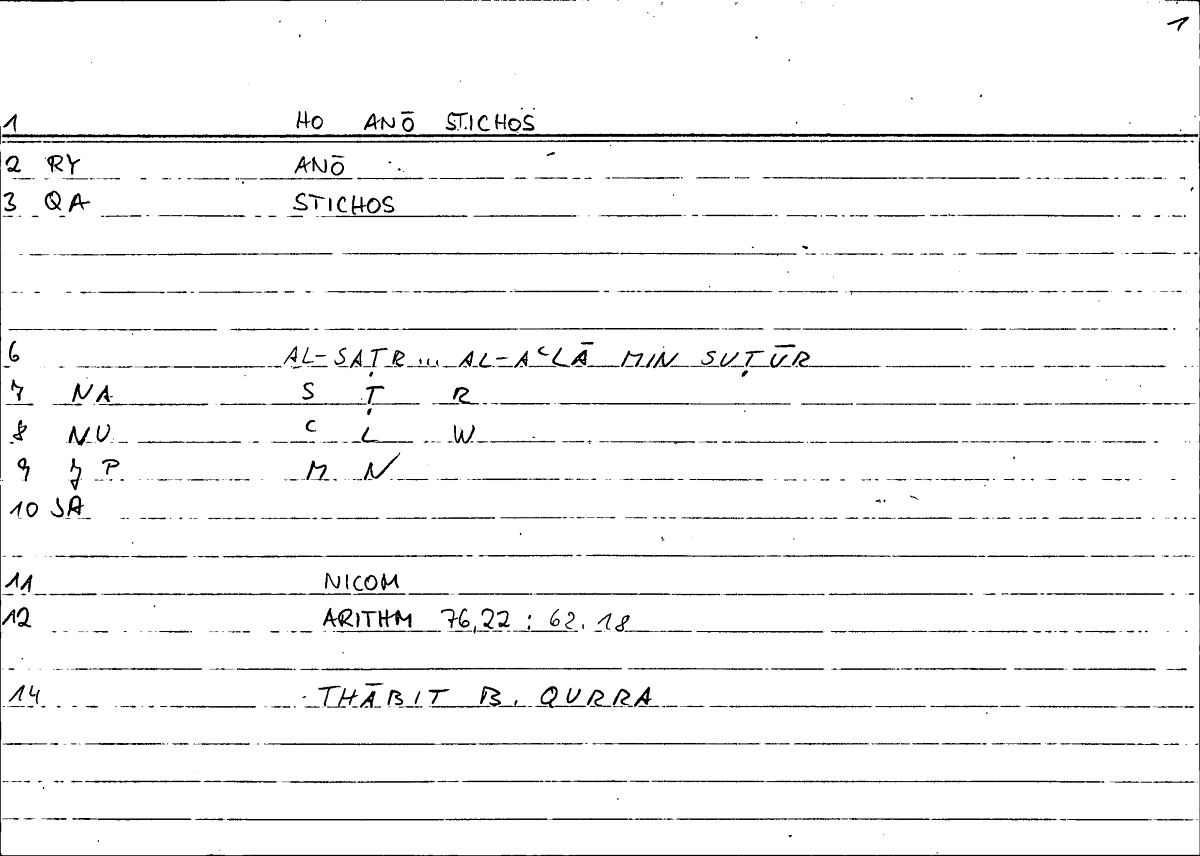 1
1 HO ANŌ STICHOS
2 RY ANŌ
3 QA STICHOS
6 AL-SAṬR... AL-AʿLĀ MIN SUṬŪR
7 NA S Ṭ R
8 NU ʿ L W
9 JP M N
10 JA
11 NICOM
12 ARITHM 76,22 : 62.18
14 THĀBIT B. QURRA